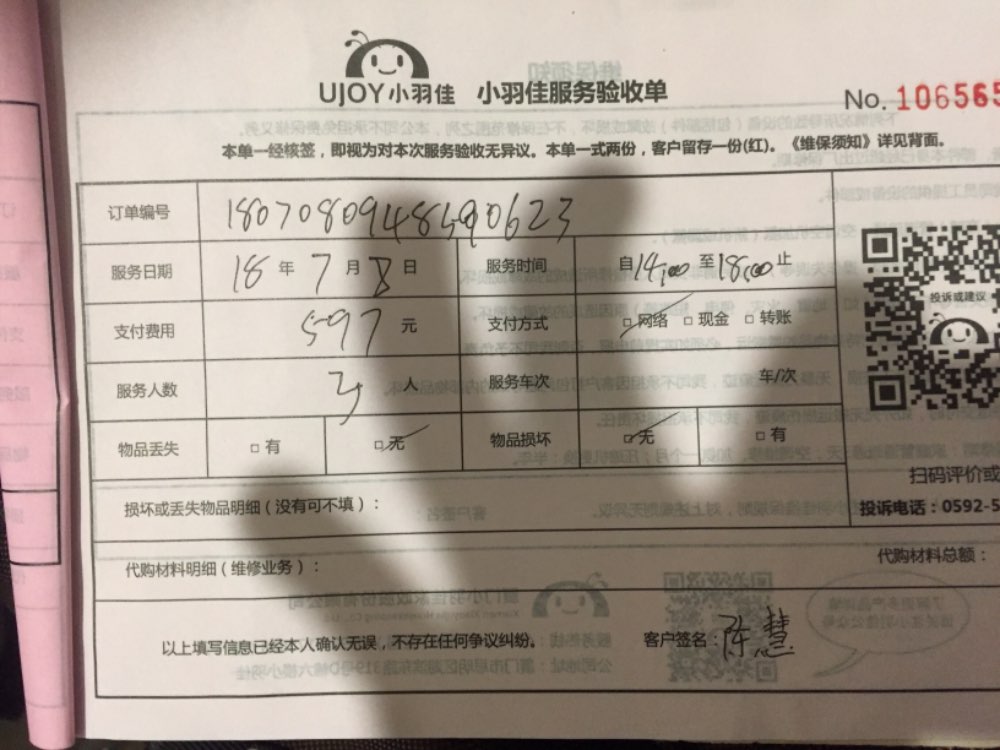 UJOY小羽佳 小羽佳服务验收单
No. 106565
本单一经核签，即视为对本次服务验收无异议。本单一式两份，客户留存一份(红)。《维保须知》详见背面。
订单编号 18070809484590623
服务日期 18 年 7 月 8 日 服务时间 自14:00至18:00止
支付费用 597 元 支付方式 □网络 □现金 □转账
服务人数 3 人 服务车次 车/次
物品丢失 □有 □无 物品损坏 □无 □有
投诉或建议
扫码评价或
投诉电话：0592-5
损坏或丢失物品明细（没有可不填）：
代购材料明细（维修业务）： 代购材料总额：
以上填写信息已经本人确认无误，不存在任何争议纠纷。 客户签名：陈慧